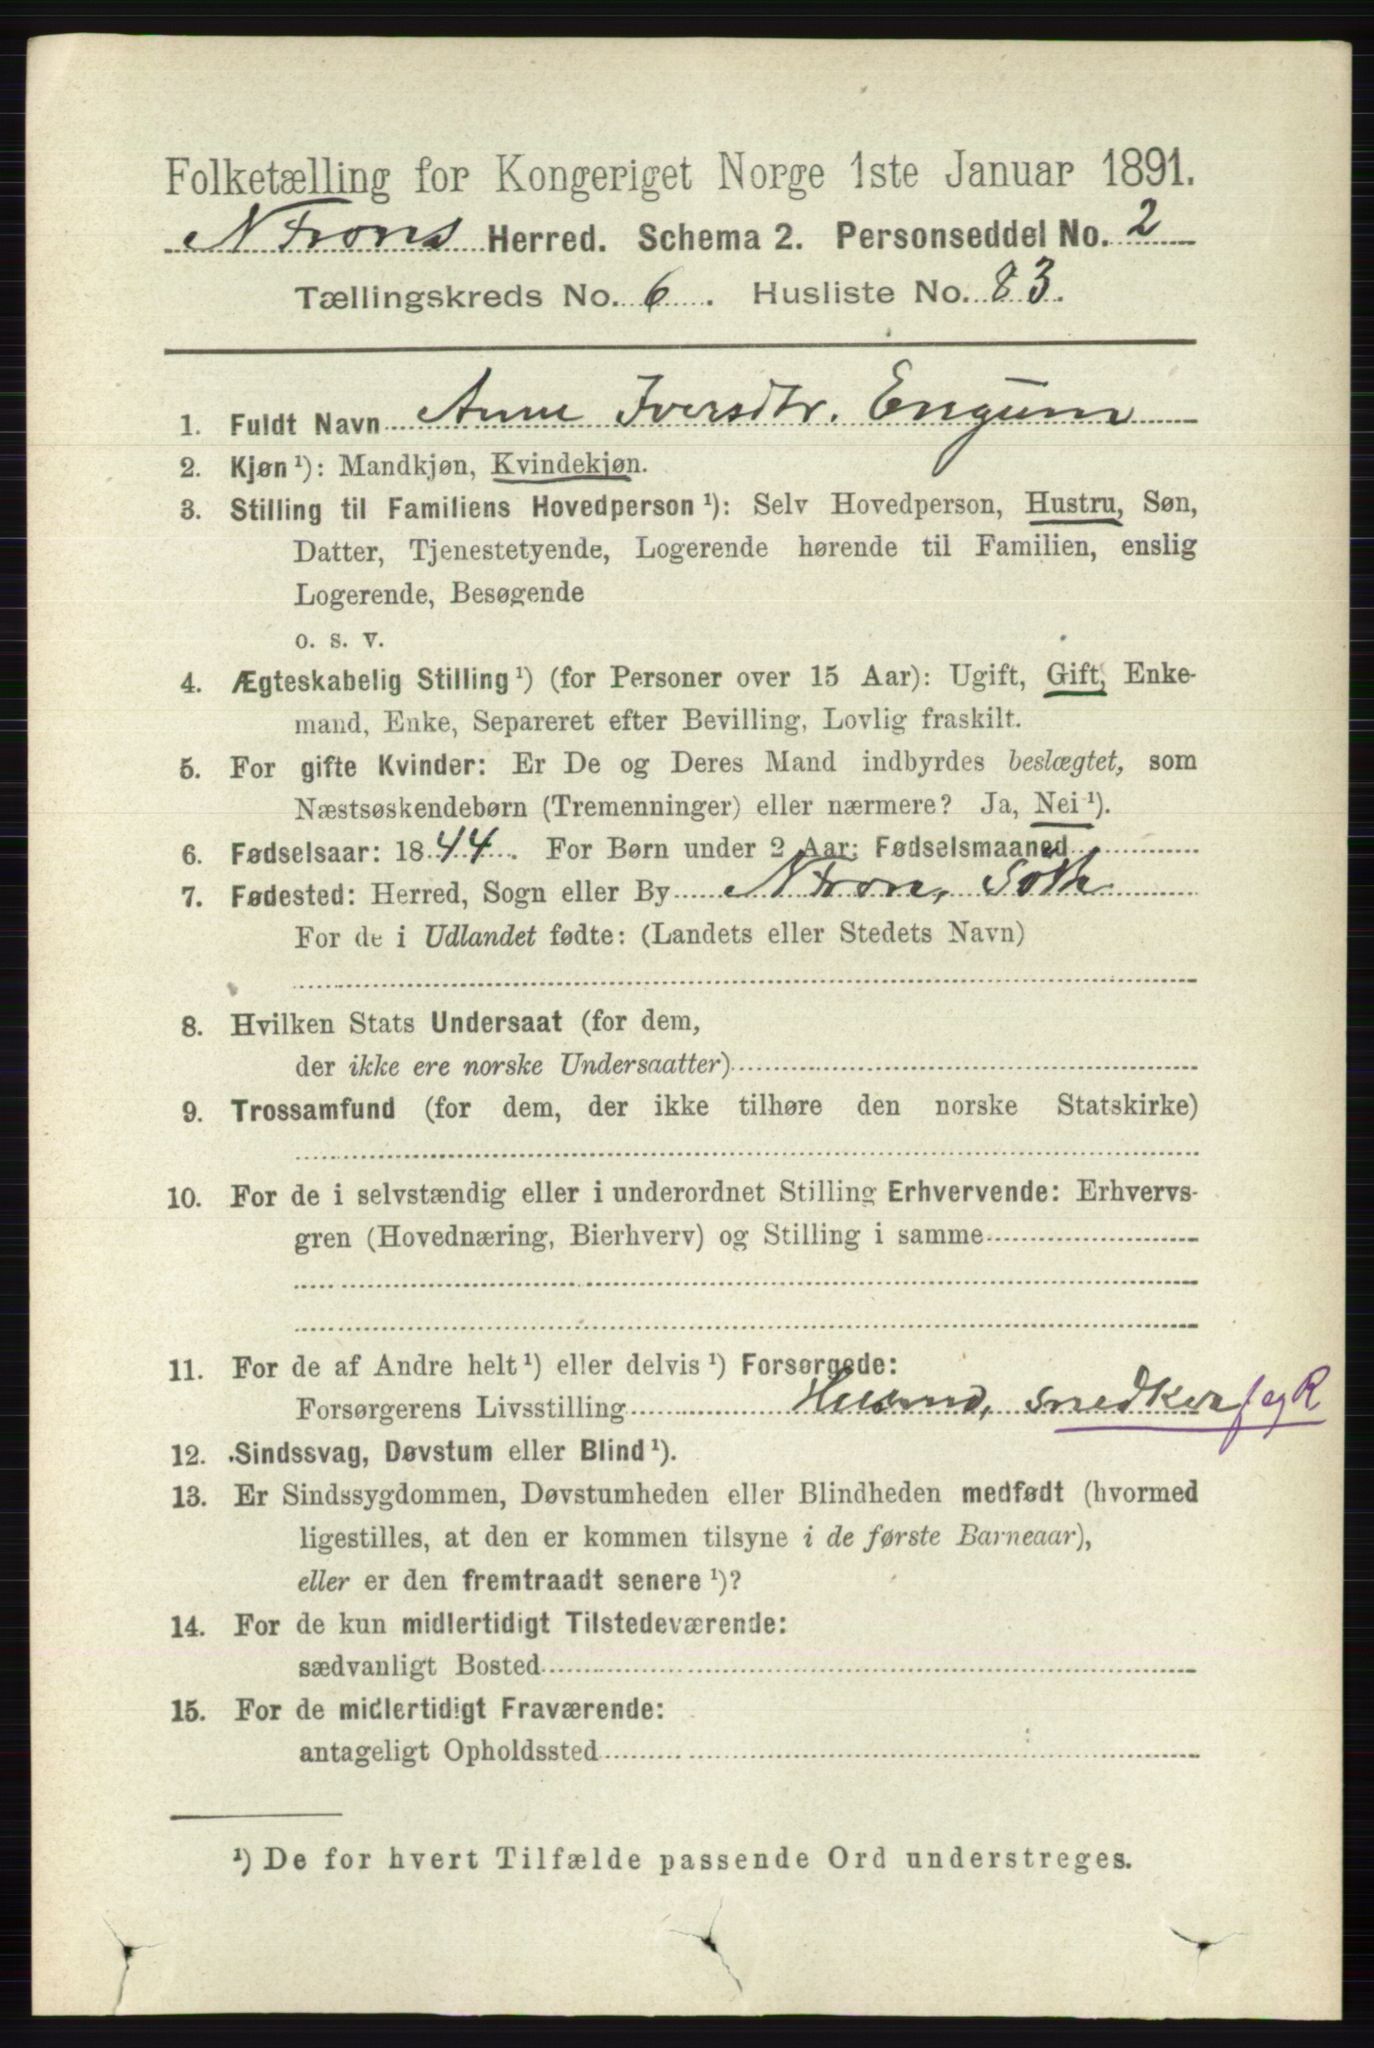 Folketælling for Kongeriget Norge 1ste Januar 1891.
N Frons Herred. Schema 2. Personseddel No. 2
Tællingskreds No. 6. Husliste No. 83.
1. Fuldt Navn Anne Iversdtr. Engum
2. Kjøn ¹): Mandkjøn, Kvindekjøn.
3. Stilling til Familiens Hovedperson ¹): Selv Hovedperson, Hustru, Søn,
Datter, Tjenestetyende, Logerende hørende til Familien, enslig
Logerende, Besøgende
o. s. v.
4. Ægteskabelig Stilling ¹) (for Personer over 15 Aar): Ugift, Gift, Enke-
mand, Enke, Separeret efter Bevilling, Lovlig fraskilt.
5. For gifte Kvinder: Er De og Deres Mand indbyrdes beslægtet, som
Næstsøskendebørn (Tremenninger) eller nærmere? Ja, Nei ¹).
6. Fødselsaar: 1844. For Børn under 2 Aar: Fødselsmaaned
7. Fødested: Herred, Sogn eller By N Fron, Soth
For de i Udlandet fødte: (Landets eller Stedets Navn)
8. Hvilken Stats Undersaat (for dem,
der ikke ere norske Undersaatter)
9. Trossamfund (for dem, der ikke tilhøre den norske Statskirke)
10. For de i selvstændig eller i underordnet Stilling Erhvervende: Erhvervs-
gren (Hovednæring, Bierhverv) og Stilling i samme
11. For de af Andre helt ¹) eller delvis ¹) Forsørgede:
Forsørgerens Livsstilling Husmd, snedker f eg R
12. Sindssvag, Døvstum eller Blind ¹).
13. Er Sindssygdommen, Døvstumheden eller Blindheden medfødt (hvormed
ligestilles, at den er kommen tilsyne i de første Barneaar),
eller er den fremtraadt senere ¹)?
14. For de kun midlertidigt Tilstedeværende:
sædvanligt Bosted
15. For de midlertidigt Fraværende:
antageligt Opholdssted
¹) De for hvert Tilfælde passende Ord understreges.